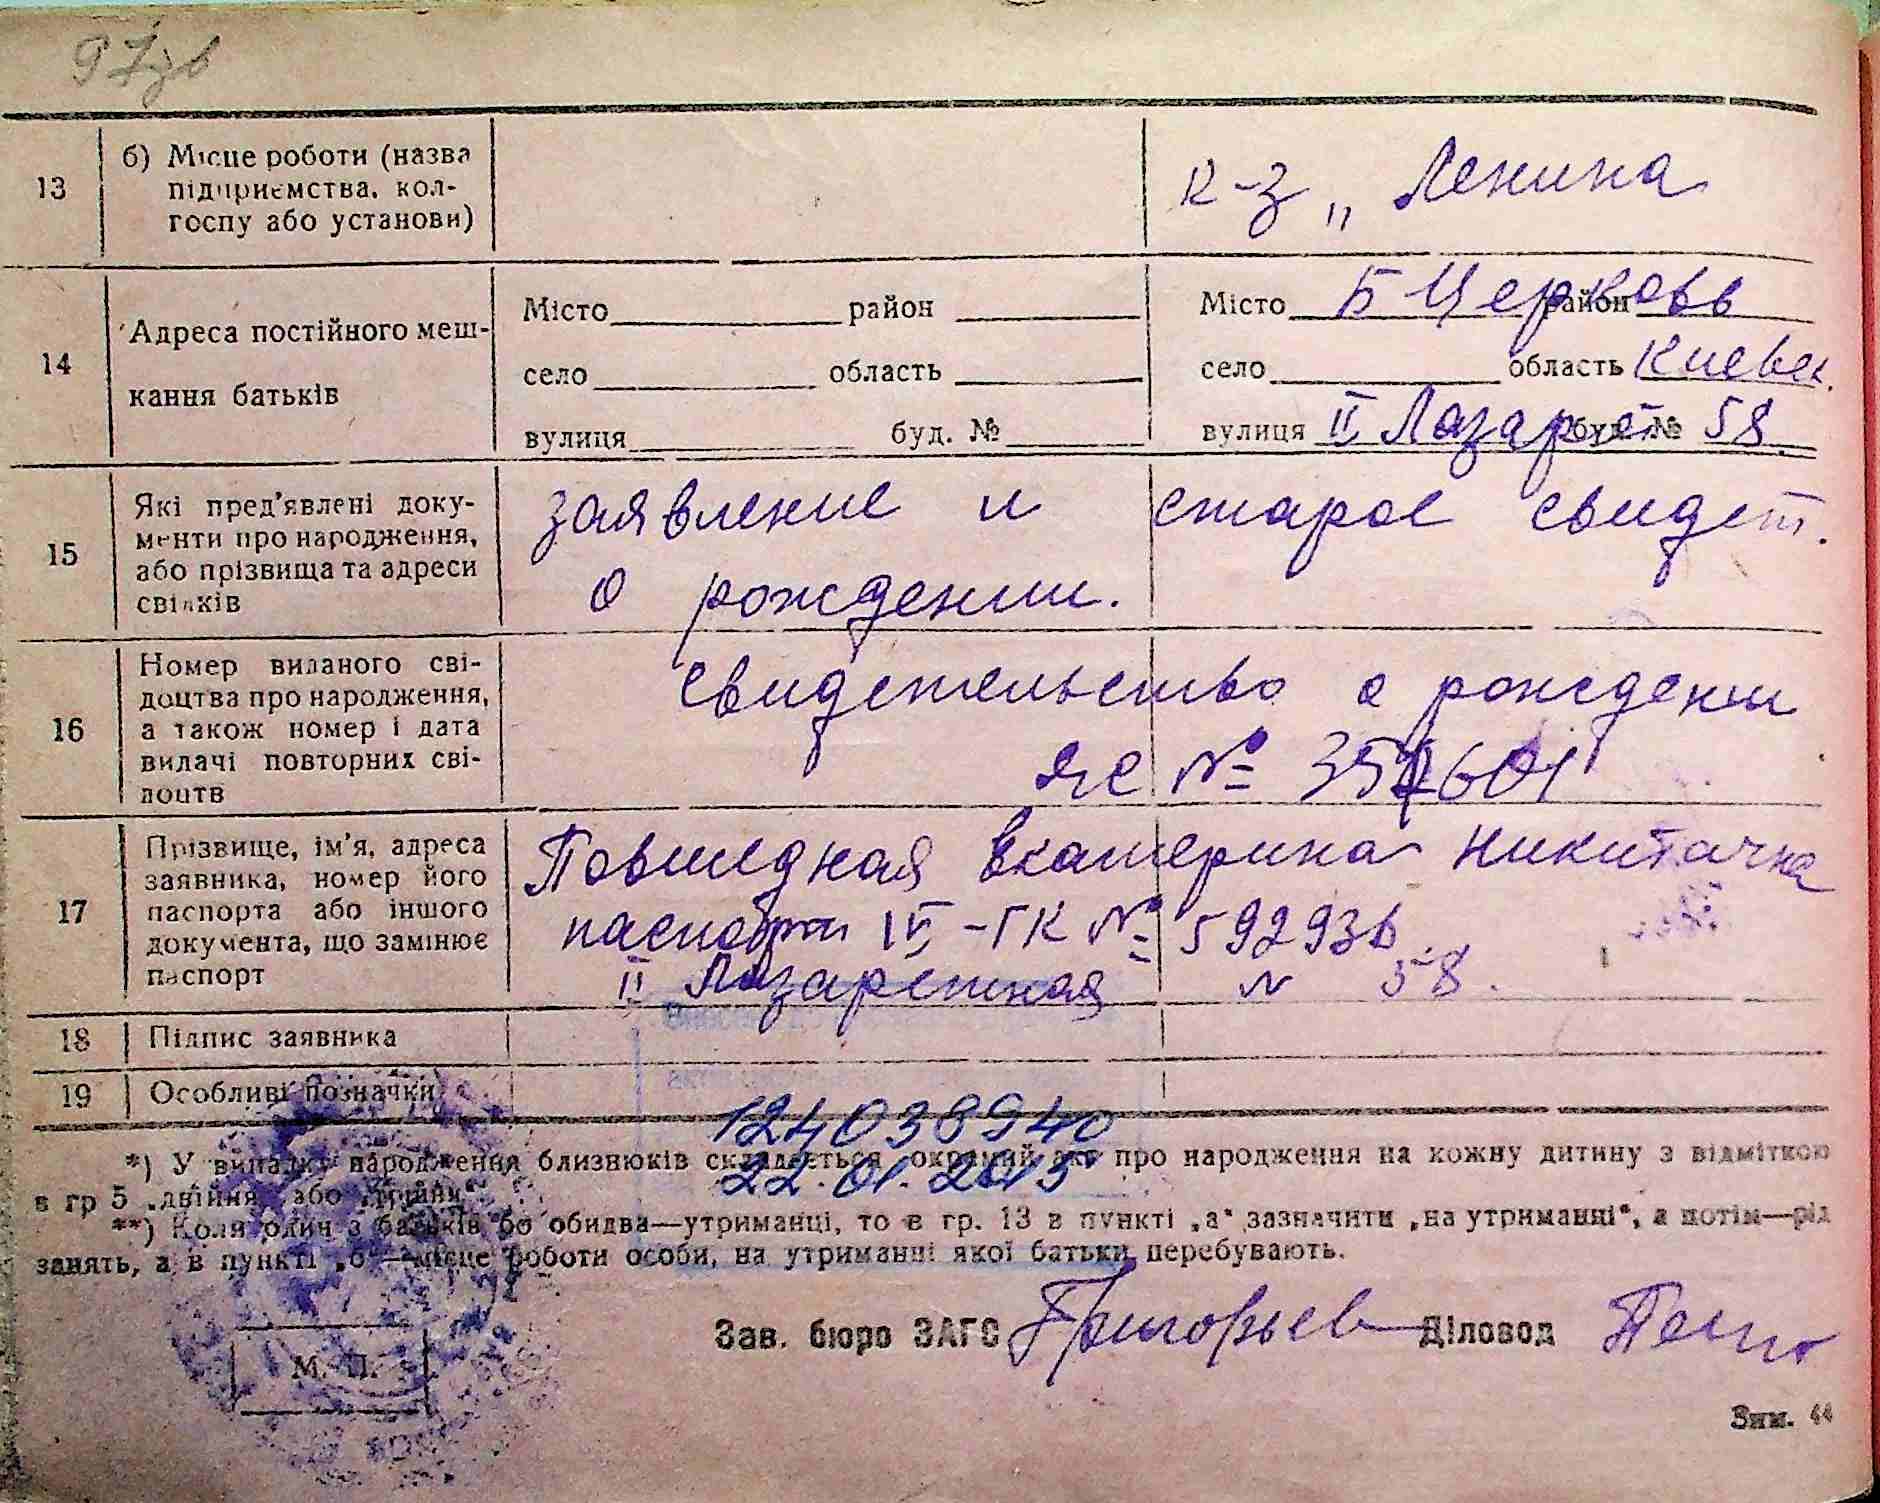 97зв
13 б) Місце роботи (назва підприємства, колгоспу або установи)
к-з „ Ленина
14 Адреса постійного мешкання батьків
Місто район
село область
вулиця буд. №
Місто Б Церковь район
село область Киевск.
вулиця II Лазарет буд. № 58
15 Які пред'явлені документи про народження, або прізвища та адреси свідків
заявление и старое свидет.
о рождении.
16 Номер виданого свідоцтва про народження, а також номер і дата видачі повторних свідоцтв
свидетельство о рождении
ЯС № 357601
17 Прізвище, ім'я, адреса заявника, номер його паспорта або іншого документа, що замінює паспорт
Повшедная Екатерина Никитична
паспорт IV-ГК № 592936
II Лазаретная N 58.
18 Підпис заявника
19 Особливі позначки
124038940
22.01.2015
*) У випадку народження близнюків складається окремий акт про народження на кожну дитину з відміткою
в гр 5 „двійня“ або „трійня“
**) Коли один з батьків бо обидва—утриманці, то в гр. 13 в пункті „а“ зазначити „на утриманні“, а потім—рід
занять, а в пункті „б“—місце роботи особи, на утриманні якої батьки перебувають.
Зав. бюро ЗАГС Григорьев Діловод
М. П.
Зим. 44